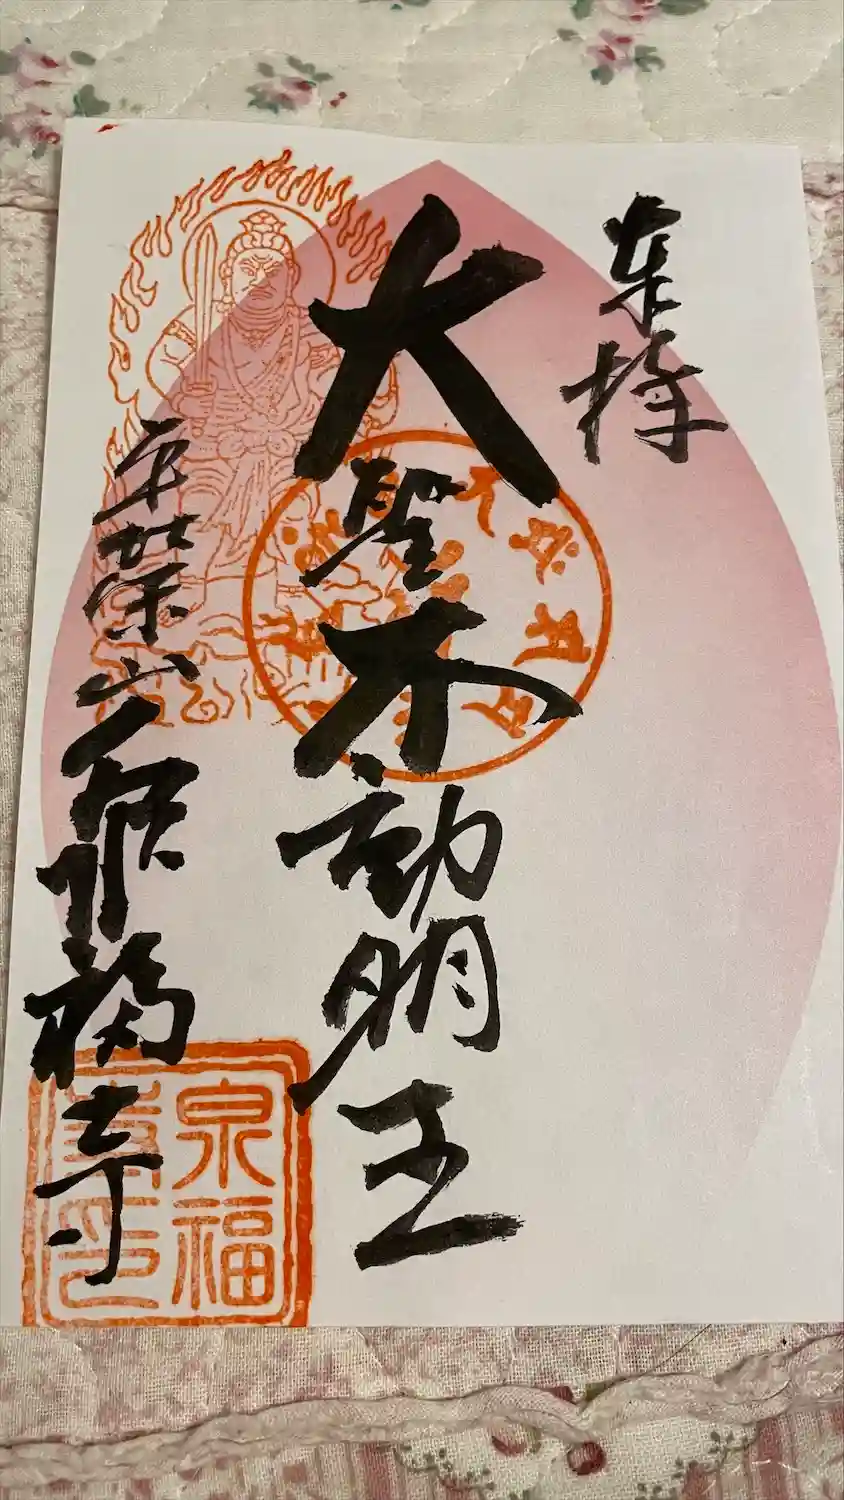 奉拝
大聖不動明王
山泉福寺
泉福
寺印